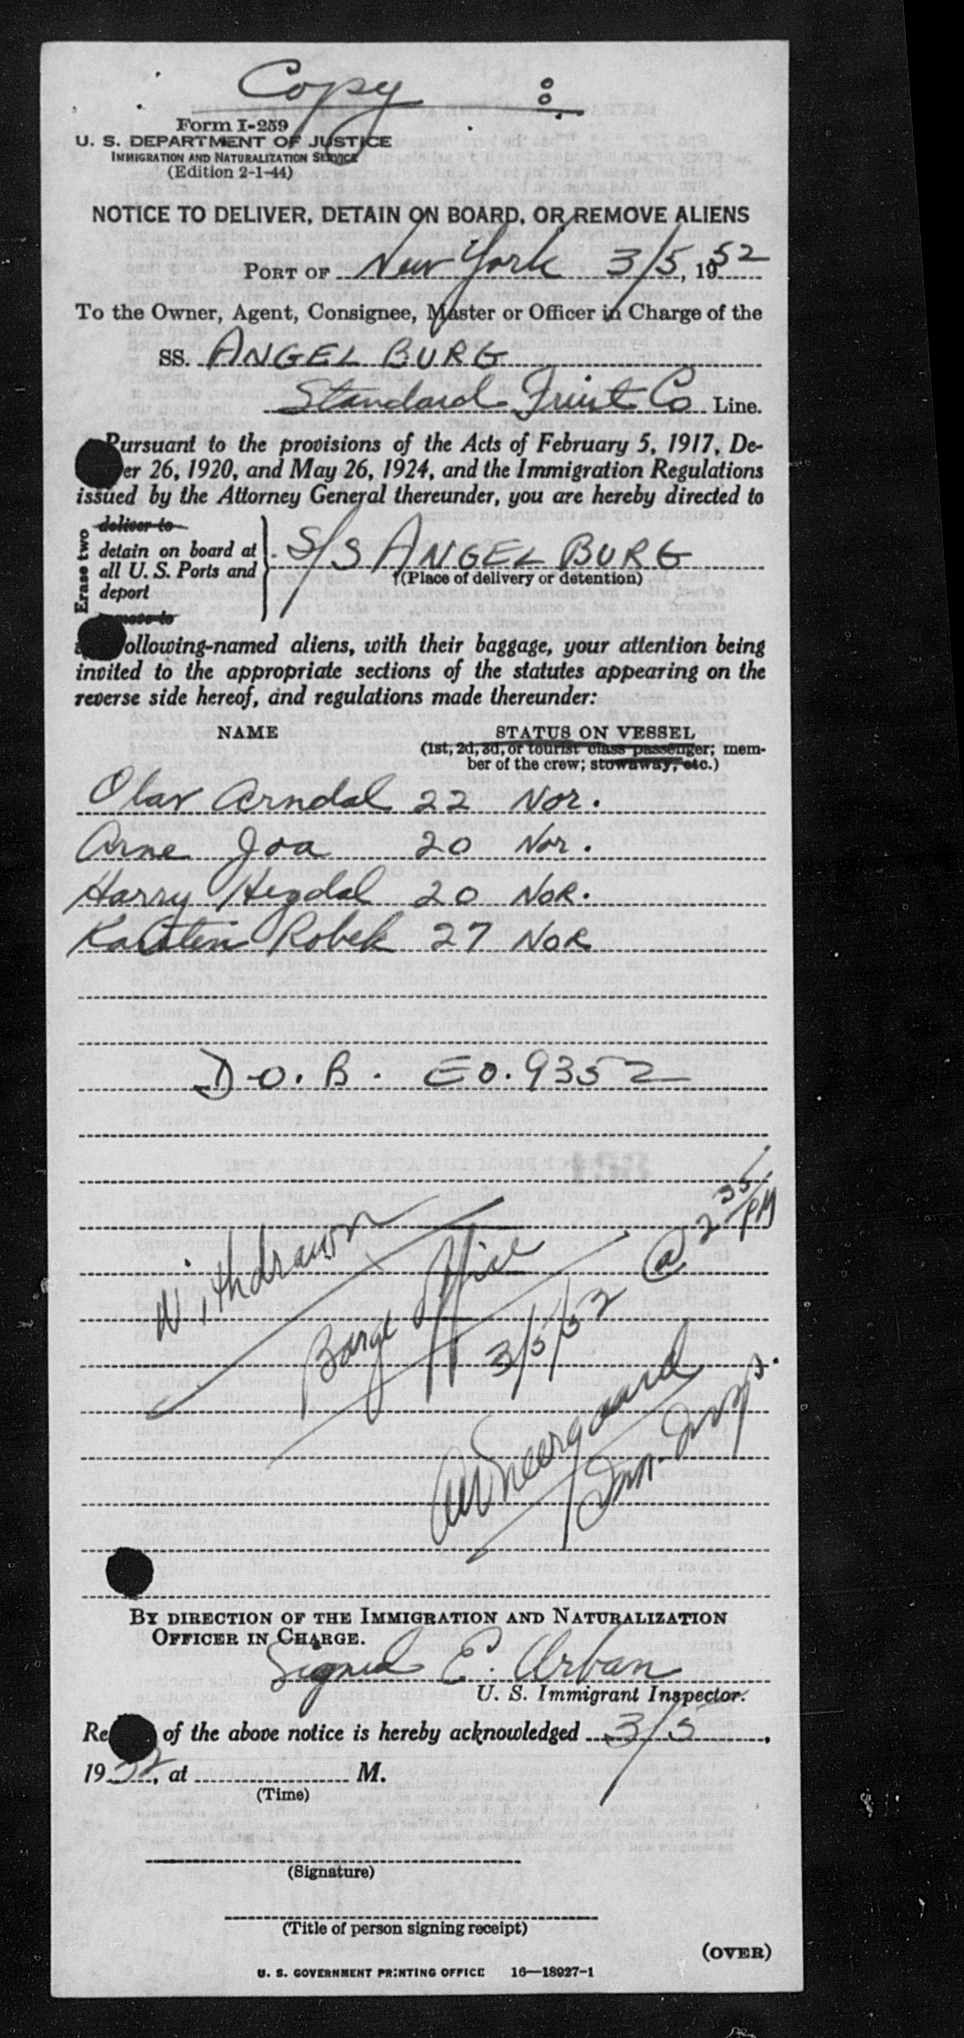 Copy
Form I-259
U. S. DEPARTMENT OF JUSTICE
IMMIGRATION AND NATURALIZATION SERVICE
(Edition 2-1-44)
NOTICE TO DELIVER, DETAIN ON BOARD, OR REMOVE ALIENS
PORT OF New York 3/5, 1952
To the Owner, Agent, Consignee, Master or Officer in Charge of the
SS. ANGEL BURG
Standard Fruit Co Line.
Pursuant to the provisions of the Acts of February 5, 1917, De-
er 26, 1920, and May 26, 1924, and the Immigration Regulations
issued by the Attorney General thereunder, you are hereby directed to
Erase two
deliver to
detain on board at
all U. S. Ports and
deport
S/S ANGEL BURG
(Place of delivery or detention)
ollowing-named aliens, with their baggage, your attention being
invited to the appropriate sections of the statutes appearing on the
reverse side hereof, and regulations made thereunder:
NAME STATUS ON VESSEL
(1st, 2d, 3d, or tourist class passenger; mem-
ber of the crew; stowaway, etc.)
Olav Arndal 22 Nor.
Arne Joa 20 Nor.
Harry Hegdal 20 NOR.
Karstein Robek 27 NOR
D.O.B. EO.9352
Withdrawn
Barge Office
3/5/52 @ 2 35/PM
Neergaard
Imm. Insp.
BY DIRECTION OF THE IMMIGRATION AND NATURALIZATION
OFFICER IN CHARGE.
Signed E. Urban
U. S. Immigrant Inspector.
Re of the above notice is hereby acknowledged 3/5,
1952, at M.
(Time)
(Signature)
(Title of person signing receipt)
(OVER)
U. S. GOVERNMENT PRINTING OFFICE 16—18927-1